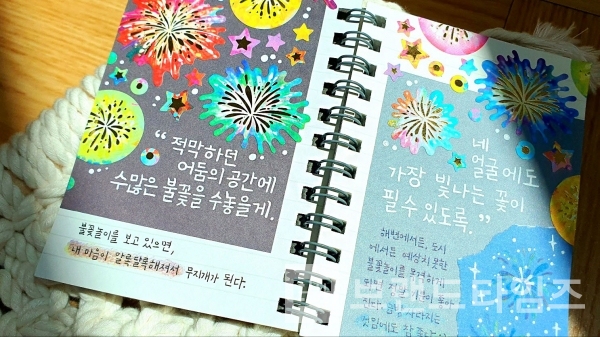 “ 적막하던
어둠의 공간에
수많은 불꽃을 수놓을게.
불꽃놀이를 보고 있으면,
내 마음이 알록달록해져서 무지개가 된다.
네
얼굴에도
가장 빛나는 꽃이
필 수 있도록. ”
해변에서든, 도시
에서든 예상치 못한
불꽃놀이를 우연하게
브랜드타임즈